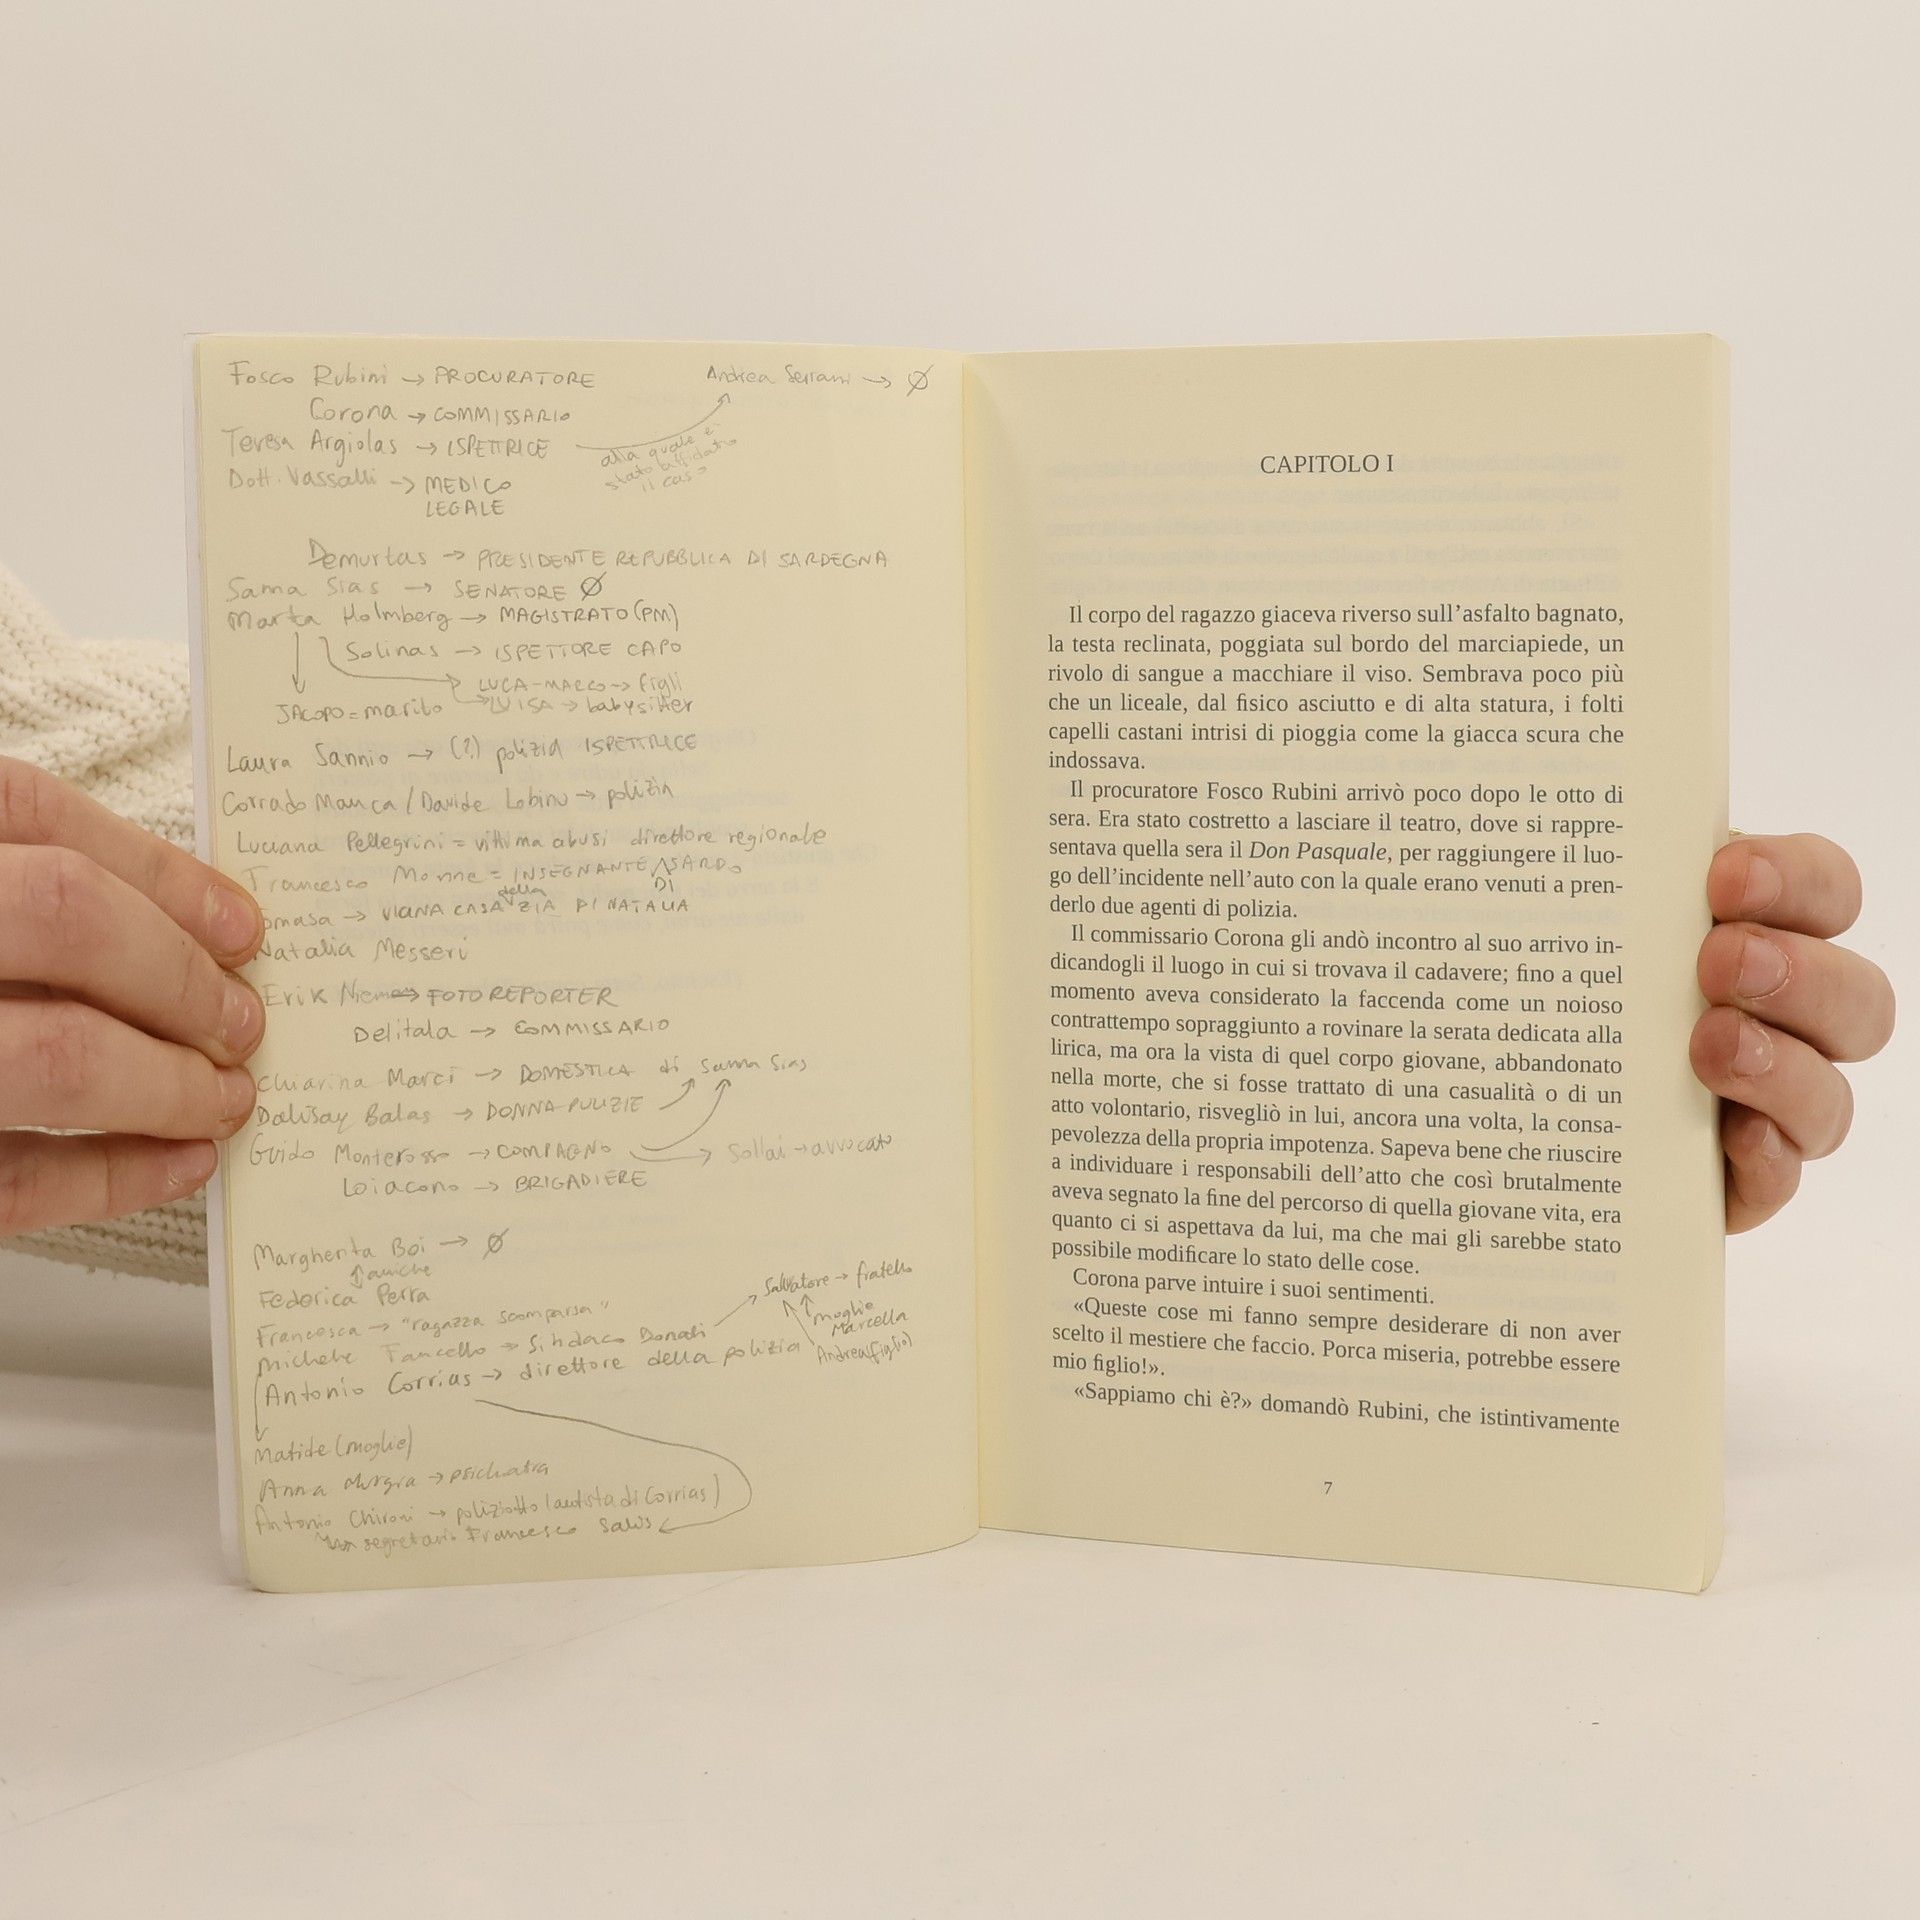 Fosco Rubini → PROCURATORE
Andrea Serrani → Ø
Corona → COMMISSARIO
Teresa Argiolas → ISPETTRICE
alla quale è
stato affidato
il caso
Dott. Vassalli → MEDICO
LEGALE
Demurtas → PRESIDENTE REPUBBLICA DI SARDEGNA
Sanna Sias → SENATORE Ø
Marta Holmberg → MAGISTRATO (PM)
Solinas → ISPETTORE CAPO
LUCA-MARCO → figli
JACOPO = marito
LUISA → babysitter
Laura Sannio → (?) polizia ISPETTRICE
Corrado Manca / Davide Lobinu → polizia
Luciana Pellegrini = vittima abusi direttore regionale
Francesco Monne = INSEGNANTE DI SARDO
Tomasa → VICINA CASA della ZIA DI NATALIA
Natalia Messeri
Erik → FOTOREPORTER
Delitala → COMMISSARIO
Chiarina Marci → DOMESTICA di Sanna Sias
Dalisay Balas → DONNA PULIZIE
Guido Monterosso → COMPAGNO → Sollai → avvocato
Loiacono → BRIGADIERE
Margherita Boi → Ø
↑ amiche
Federica Perra
Francesca → "ragazza scomparsa"
Michele Fancello → Sindaco Donati
Salvatore → fratello
moglie
Marcella
Andrea (figlio)
Antonio Corrias → direttore della polizia
Matide (moglie)
Anna Murgia → psichiatra
Antonio Chironi → poliziotto (autista di Corrias)
segretario Francesco Salis
CAPITOLO I
Il corpo del ragazzo giaceva riverso sull’asfalto bagnato,
la testa reclinata, poggiata sul bordo del marciapiede, un
rivolo di sangue a macchiare il viso. Sembrava poco più
che un liceale, dal fisico asciutto e di alta statura, i folti
capelli castani intrisi di pioggia come la giacca scura che
indossava.
Il procuratore Fosco Rubini arrivò poco dopo le otto di
sera. Era stato costretto a lasciare il teatro, dove si rappre-
sentava quella sera il Don Pasquale, per raggiungere il luo-
go dell’incidente nell’auto con la quale erano venuti a pren-
derlo due agenti di polizia.
Il commissario Corona gli andò incontro al suo arrivo in-
dicandogli il luogo in cui si trovava il cadavere; fino a quel
momento aveva considerato la faccenda come un noioso
contrattempo sopraggiunto a rovinare la serata dedicata alla
lirica, ma ora la vista di quel corpo giovane, abbandonato
nella morte, che si fosse trattato di una casualità o di un
atto volontario, risvegliò in lui, ancora una volta, la consa-
pevolezza della propria impotenza. Sapeva bene che riuscire
a individuare i responsabili dell’atto che così brutalmente
aveva segnato la fine del percorso di quella giovane vita, era
quanto ci si aspettava da lui, ma che mai gli sarebbe stato
possibile modificare lo stato delle cose.
Corona parve intuire i suoi sentimenti.
«Queste cose mi fanno sempre desiderare di non aver
scelto il mestiere che faccio. Porca miseria, potrebbe essere
mio figlio!».
«Sappiamo chi è?» domandò Rubini, che istintivamente
7